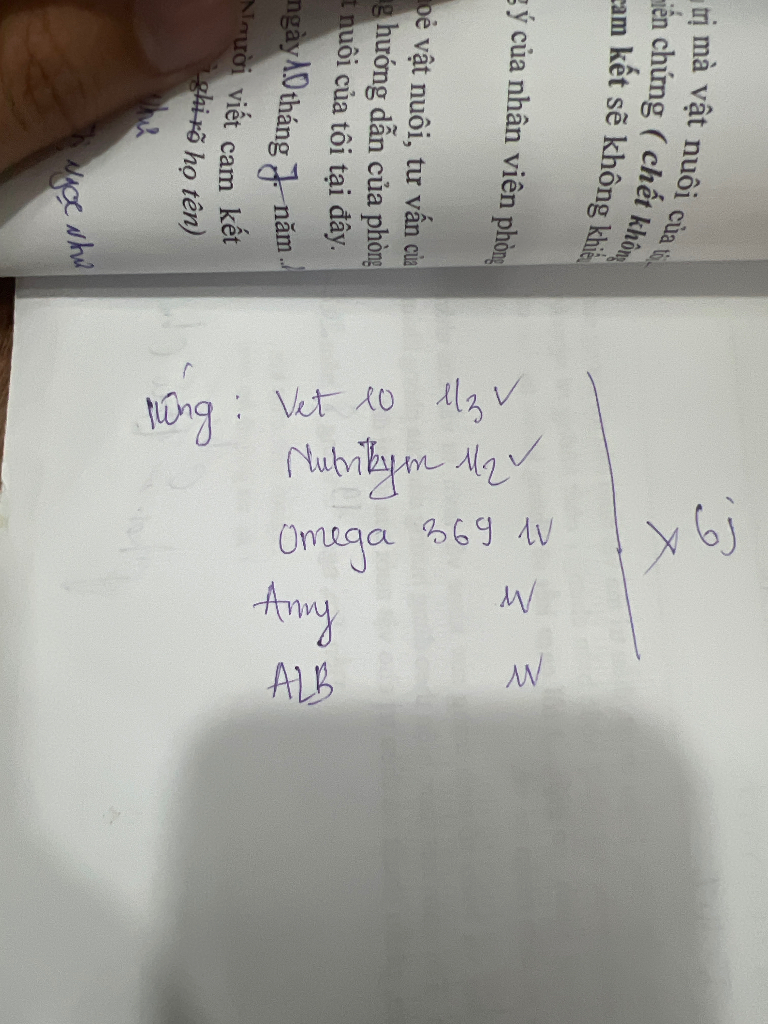 trị mà vật nuôi của tôi
biến chứng ( chết không
cam kết sẽ không khiếu
ý của nhân viên phòng
khoẻ vật nuôi, tư vấn của
hướng dẫn của phòng
nuôi của tôi tại đây.
ngày 10 tháng 7 năm
Người viết cam kết
ghi rõ họ tên)
Như
Ngọc Như
uống : Vet 10 1/3 V
Nutrikym 1/2 V
Omega 369 1V
Amy 1V
ALB 1V
X